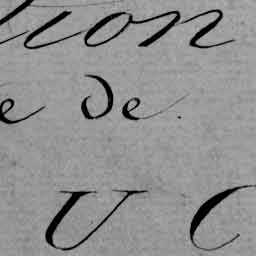 tion
e de.
U C